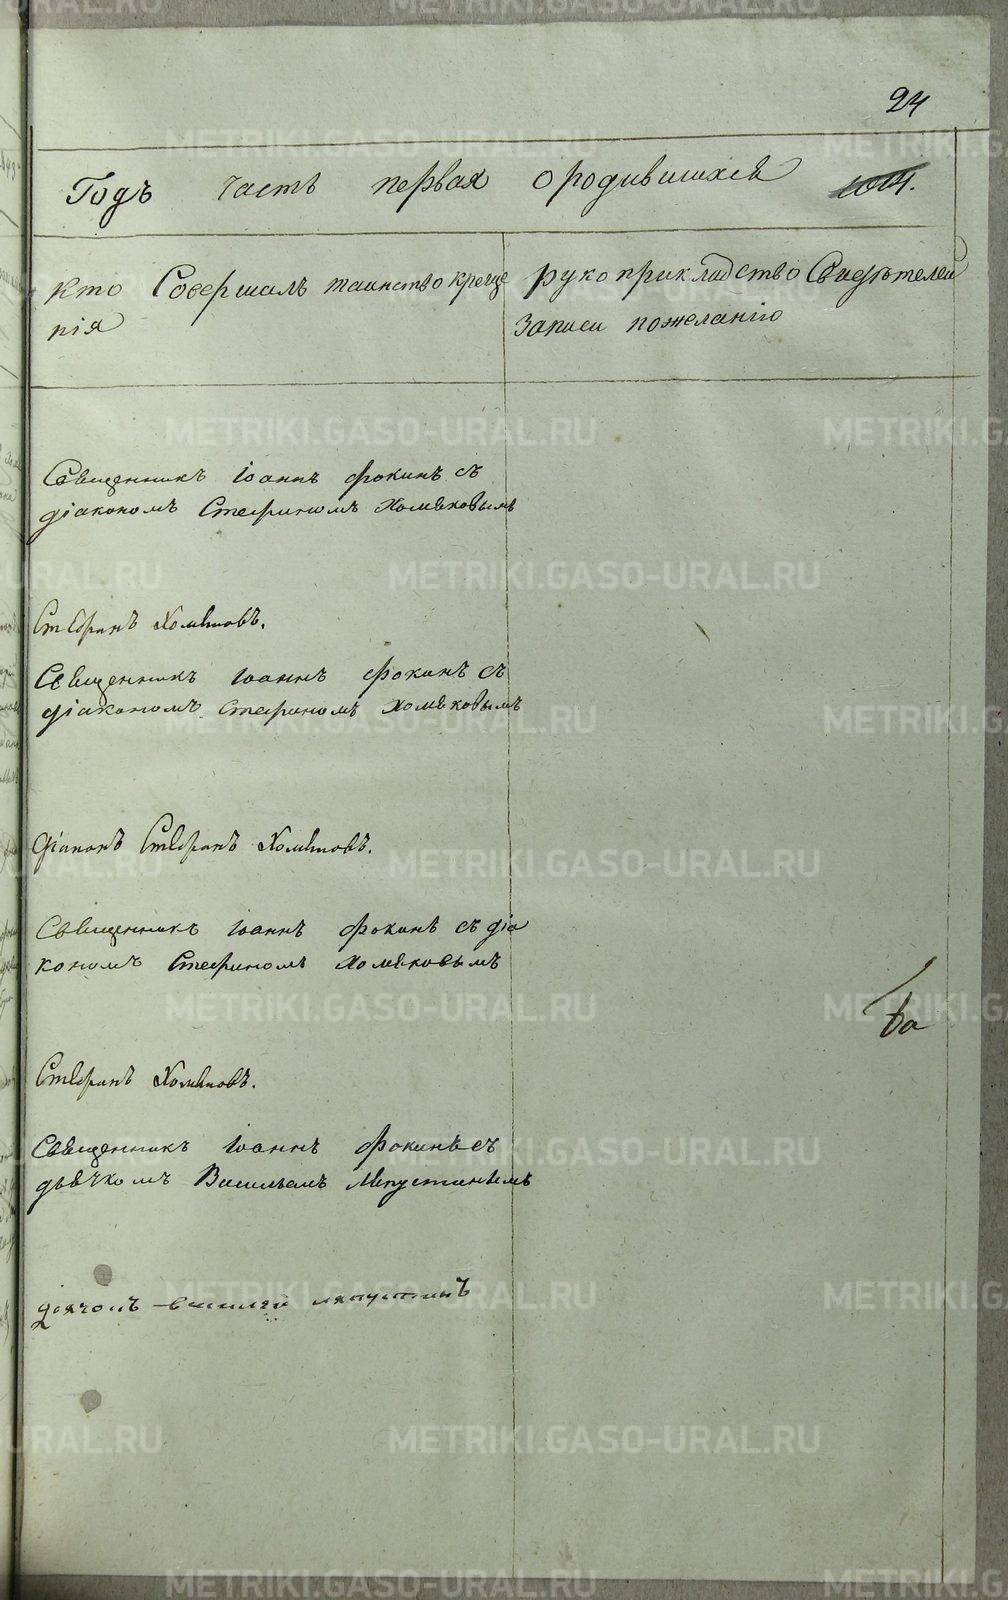 24
Годъ часть первая о родившихся
кто Совершалъ таинство креще
нія
рукоприкладство Свидѣтелей
записи пожеланію
Священникъ Іоаннъ Фокинъ съ
діакономъ Стефаномъ Хомяковымъ
Стефанъ Хомяковъ.
Священникъ Іоаннъ Фокинъ съ
діакономъ Стефаномъ Хомяковымъ
Діаконъ Стефанъ Хомяковъ.
Священникъ Іоаннъ Фокинъ съ діа
кономъ Стефаномъ Хомяковымъ
Стефанъ Хомяковъ.
Священникъ Іоаннъ Фокинъ съ
дьячкомъ Васильемъ Ляпустинымъ
василей ляпустинъ
METRIKI.GASO-URAL.RU